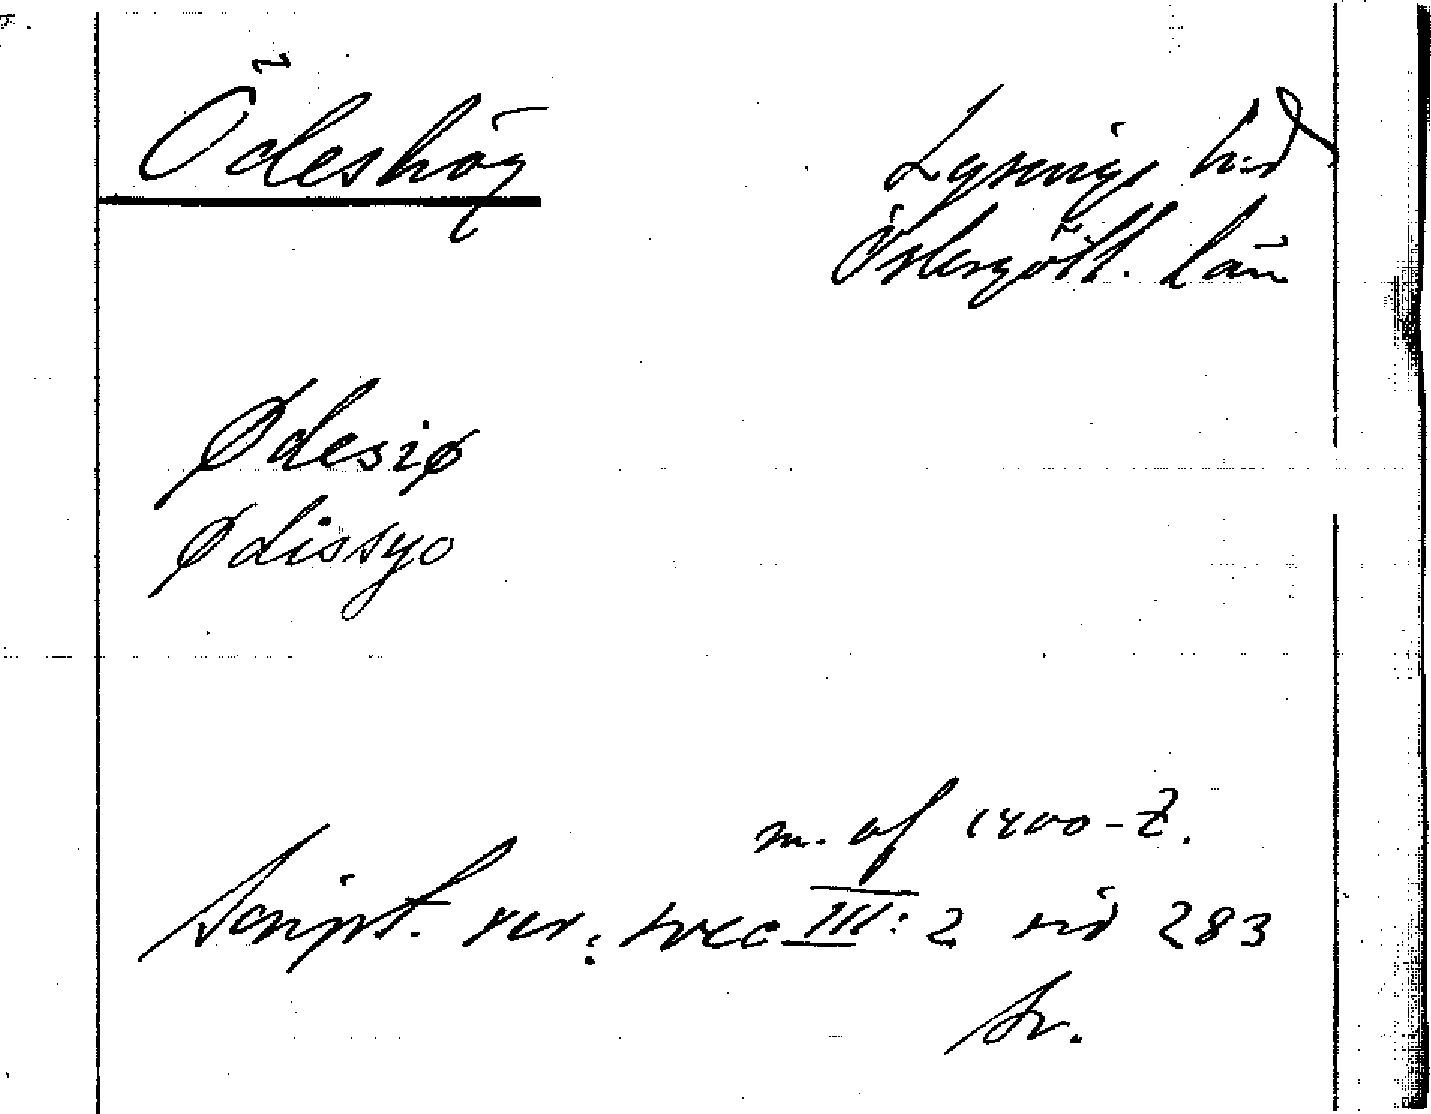 Ödeshög
Lysings h-d
Östergötl. län
Ødesiø
Ødissyo
m. af 1400-t.
Script. rer. svec III: 2 sid 283
Sv.